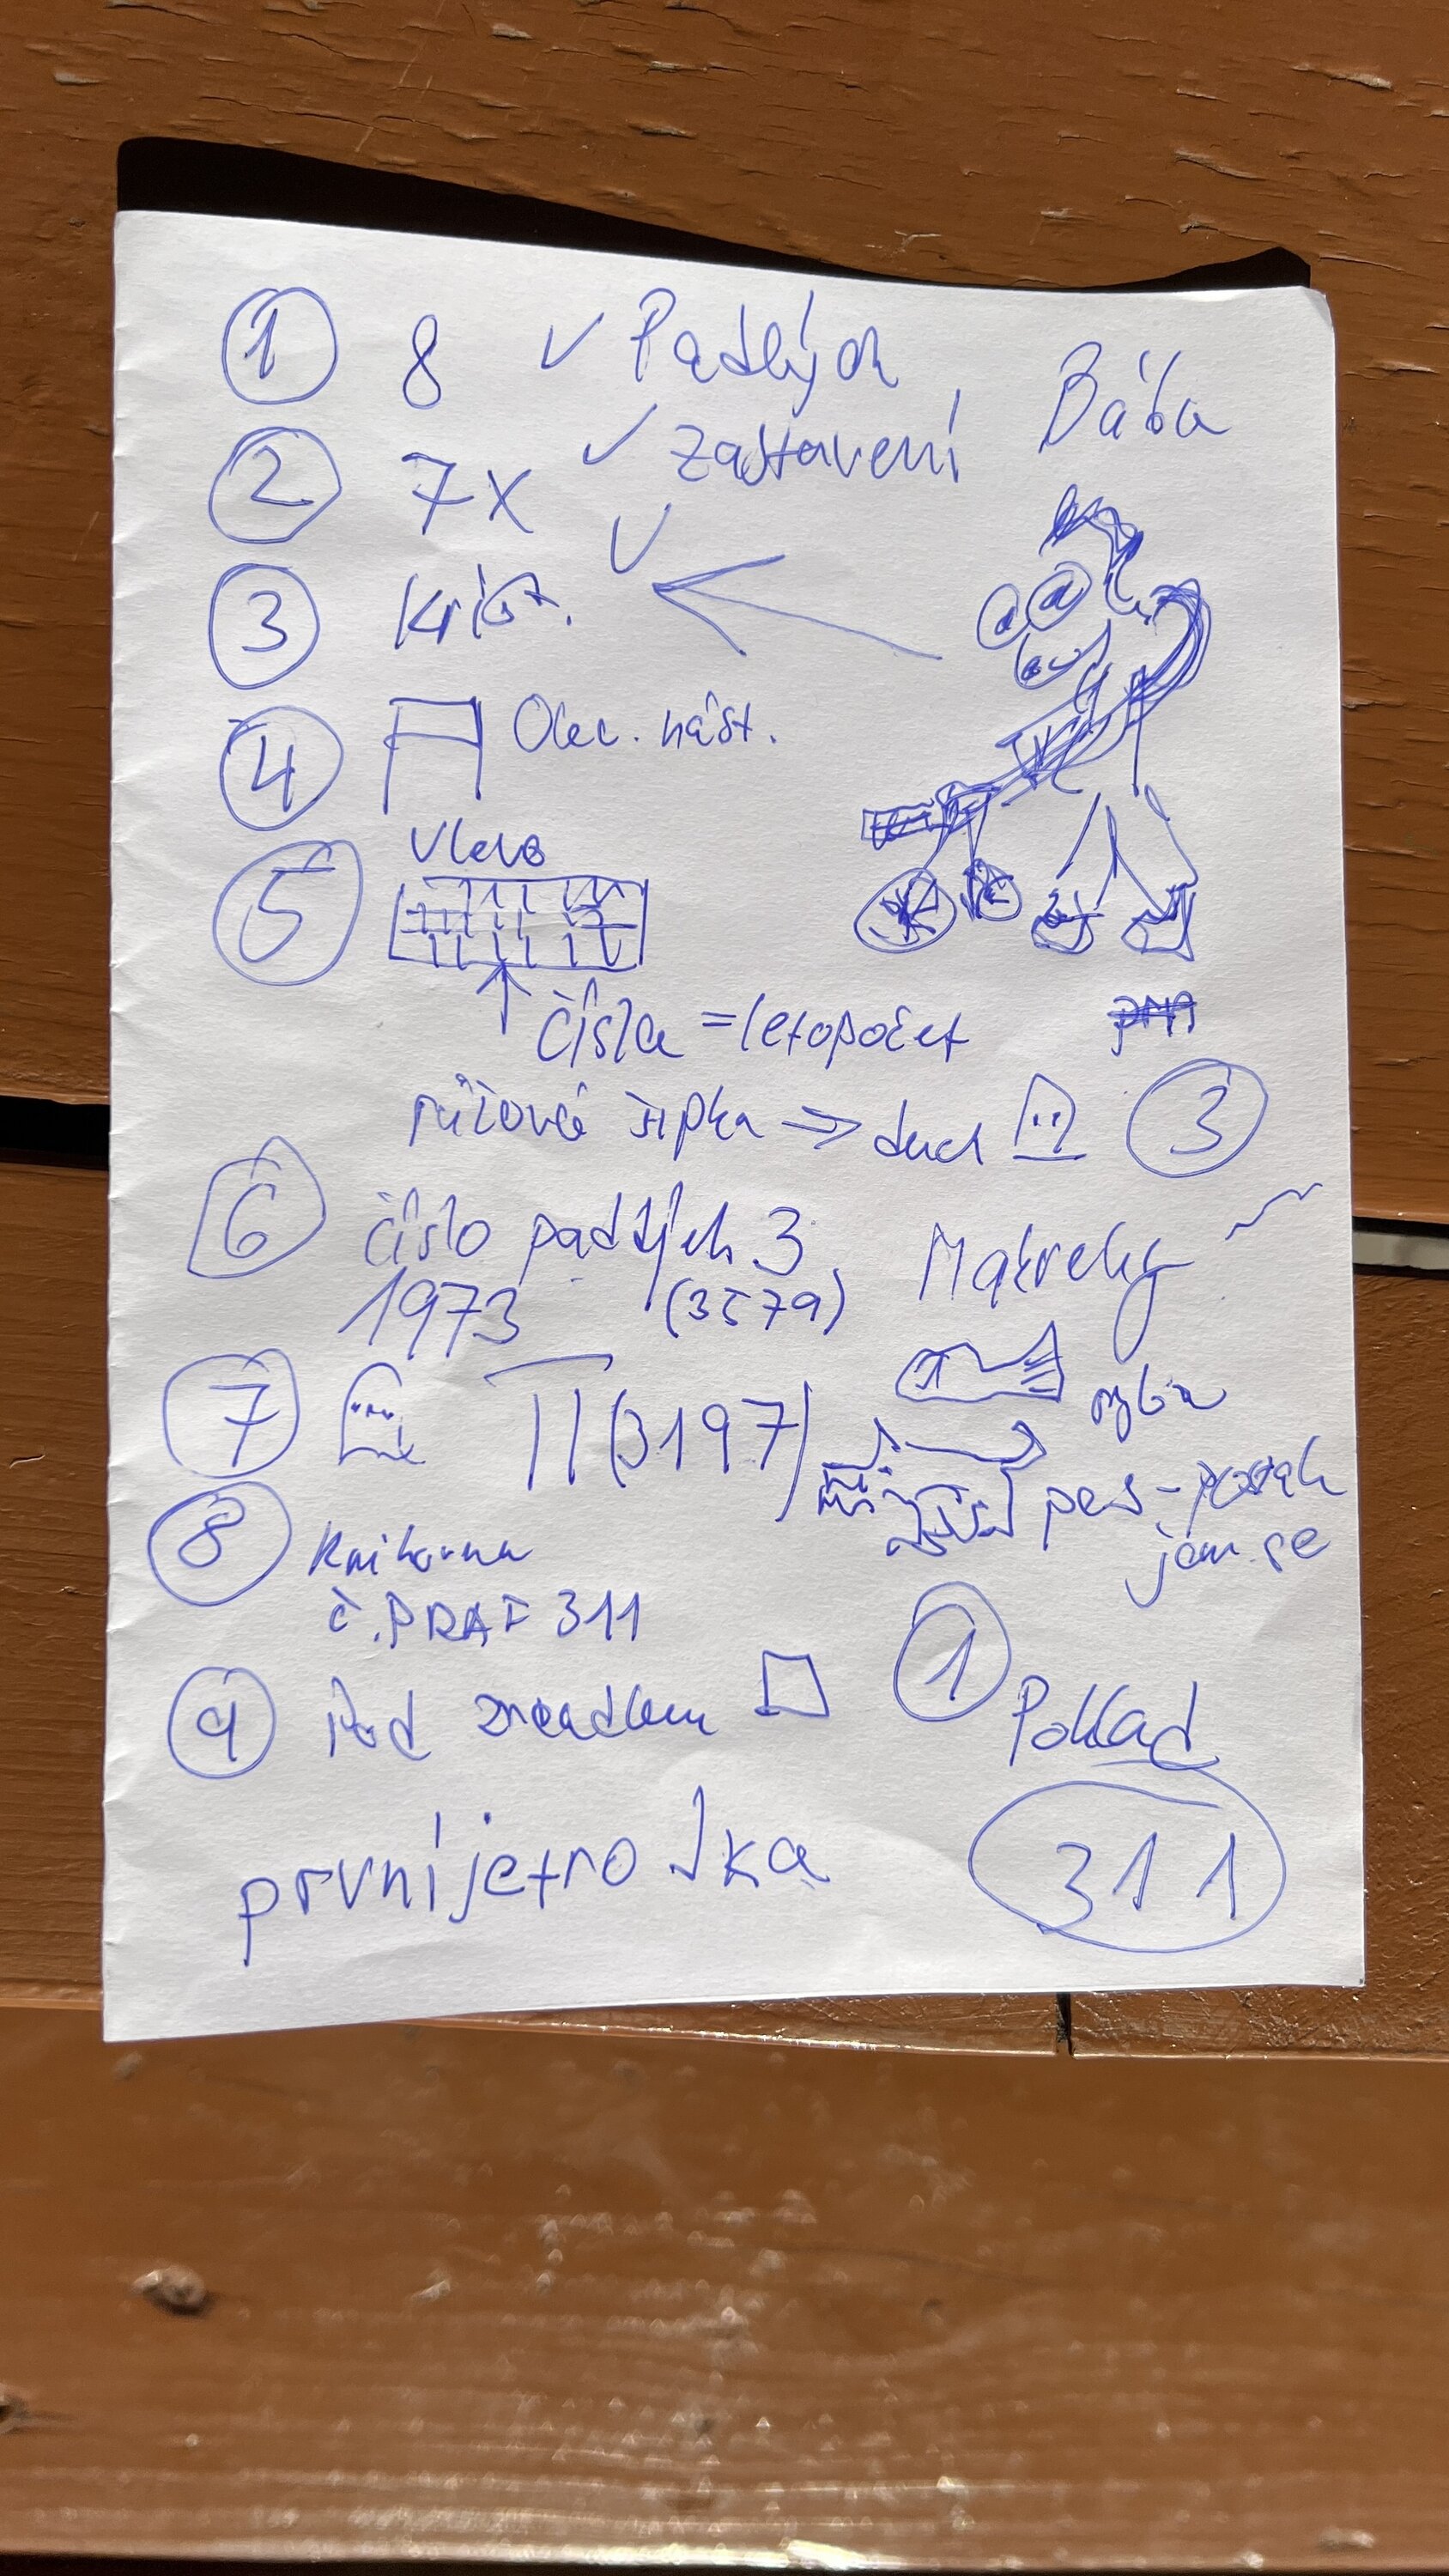 1 8 ✓ Padlých
Bába
2 7x ✓ zastavení
3 Krist. ✓
4 Olec. nást.
5 vlevo
čísla = letopočet
růžová šipka → duch 3
6 číslo padlých 3
1973 (3579)
Makrely
ryba
7 (3197)
pes -
jem. se
8 Knihovna
č. PRAF 311
9 Pod zrcadlem
1
Poklad
311
první je trojka